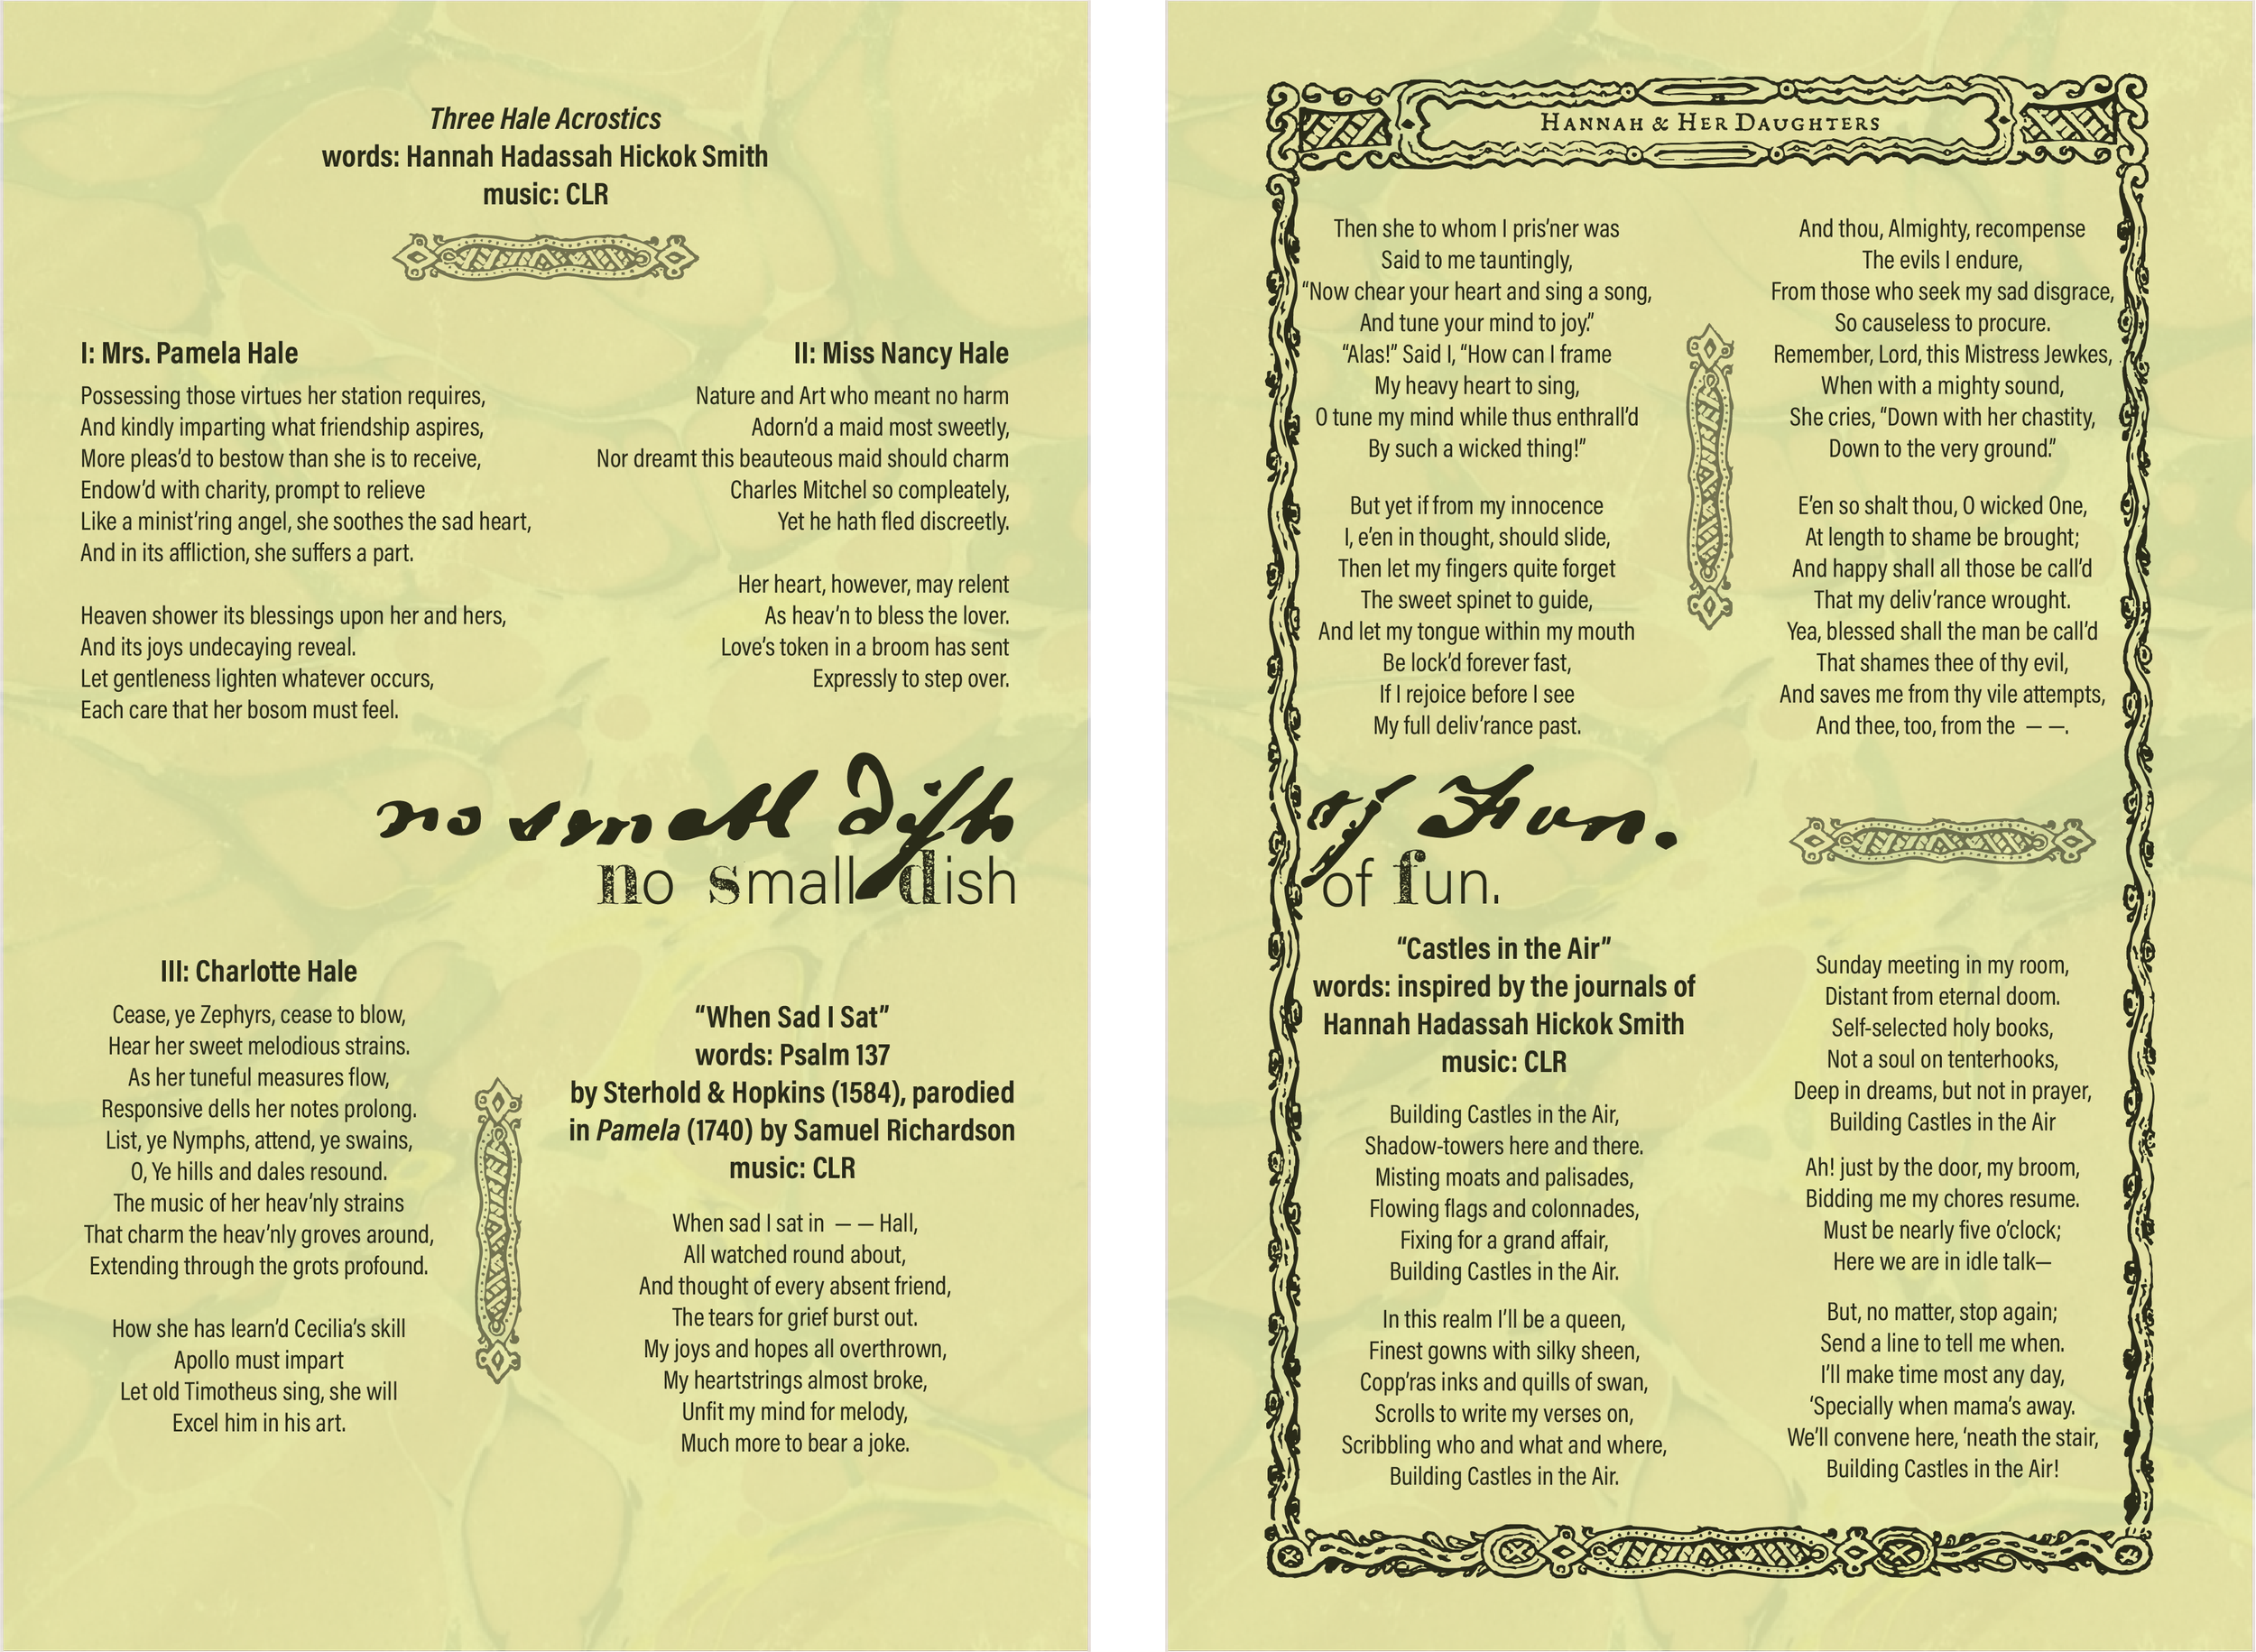 Three Hale Acrostics
words: Hannah Hadassah Hickok Smith
music: CLR
I: Mrs. Pamela Hale
Possessing those virtues her station requires,
And kindly imparting what friendship aspires,
More pleas’d to bestow than she is to receive,
Endow’d with charity, prompt to relieve
Like a minist’ring angel, she soothes the sad heart,
And in its affliction, she suffers a part.
Heaven shower its blessings upon her and hers,
And its joys undecaying reveal.
Let gentleness lighten whatever occurs,
Each care that her bosom must feel.
II: Miss Nancy Hale
Nature and Art who meant no harm
Adorn’d a maid most sweetly,
Nor dreamt this beauteous maid should charm
Charles Mitchel so compleately,
Yet he hath fled discreetly.
Her heart, however, may relent
As heav’n to bless the lover.
Love’s token in a broom has sent
Expressly to step over.
no small dish
no small dish
III: Charlotte Hale
Cease, ye Zephyrs, cease to blow,
Hear her sweet melodious strains.
As her tuneful measures flow,
Responsive dells her notes prolong.
List, ye Nymphs, attend, ye swains,
O, Ye hills and dales resound.
The music of her heav’nly strains
That charm the heav’nly groves around,
Extending through the grots profound.
How she has learn’d Cecilia’s skill
Apollo must impart
Let old Timotheus sing, she will
Excel him in his art.
“When Sad I Sat”
words: Psalm 137
by Sterhold & Hopkins (1584), parodied
in Pamela (1740) by Samuel Richardson
music: CLR
When sad I sat in — — Hall,
All watched round about,
And thought of every absent friend,
The tears for grief burst out.
My joys and hopes all overthrown,
My heartstrings almost broke,
Unfit my mind for melody,
Much more to bear a joke.
Hannah & Her Daughters
Then she to whom I pris’ner was
Said to me tauntingly,
“Now chear your heart and sing a song,
And tune your mind to joy.”
“Alas!” Said I, “How can I frame
My heavy heart to sing,
O tune my mind while thus enthrall’d
By such a wicked thing!”
But yet if from my innocence
I, e’en in thought, should slide,
Then let my fingers quite forget
The sweet spinet to guide,
And let my tongue within my mouth
Be lock’d forever fast,
If I rejoice before I see
My full deliv’rance past.
And thou, Almighty, recompense
The evils I endure,
From those who seek my sad disgrace,
So causeless to procure.
Remember, Lord, this Mistress Jewkes,
When with a mighty sound,
She cries, “Down with her chastity,
Down to the very ground.”
E’en so shalt thou, O wicked One,
At length to shame be brought;
And happy shall all those be call’d
That my deliv’rance wrought.
Yea, blessed shall the man be call’d
That shames thee of thy evil,
And saves me from thy vile attempts,
And thee, too, from the — —.
of Fun.
of fun.
“Castles in the Air”
words: inspired by the journals of
Hannah Hadassah Hickok Smith
music: CLR
Building Castles in the Air,
Shadow-towers here and there.
Misting moats and palisades,
Flowing flags and colonnades,
Fixing for a grand affair,
Building Castles in the Air.
In this realm I’ll be a queen,
Finest gowns with silky sheen,
Copp’ras inks and quills of swan,
Scrolls to write my verses on,
Scribbling who and what and where,
Building Castles in the Air.
Sunday meeting in my room,
Distant from eternal doom.
Self-selected holy books,
Not a soul on tenterhooks,
Deep in dreams, but not in prayer,
Building Castles in the Air
Ah! just by the door, my broom,
Bidding me my chores resume.
Must be nearly five o’clock;
Here we are in idle talk—
But, no matter, stop again;
Send a line to tell me when.
I’ll make time most any day,
‘Specially when mama’s away.
We’ll convene here, ‘neath the stair,
Building Castles in the Air!